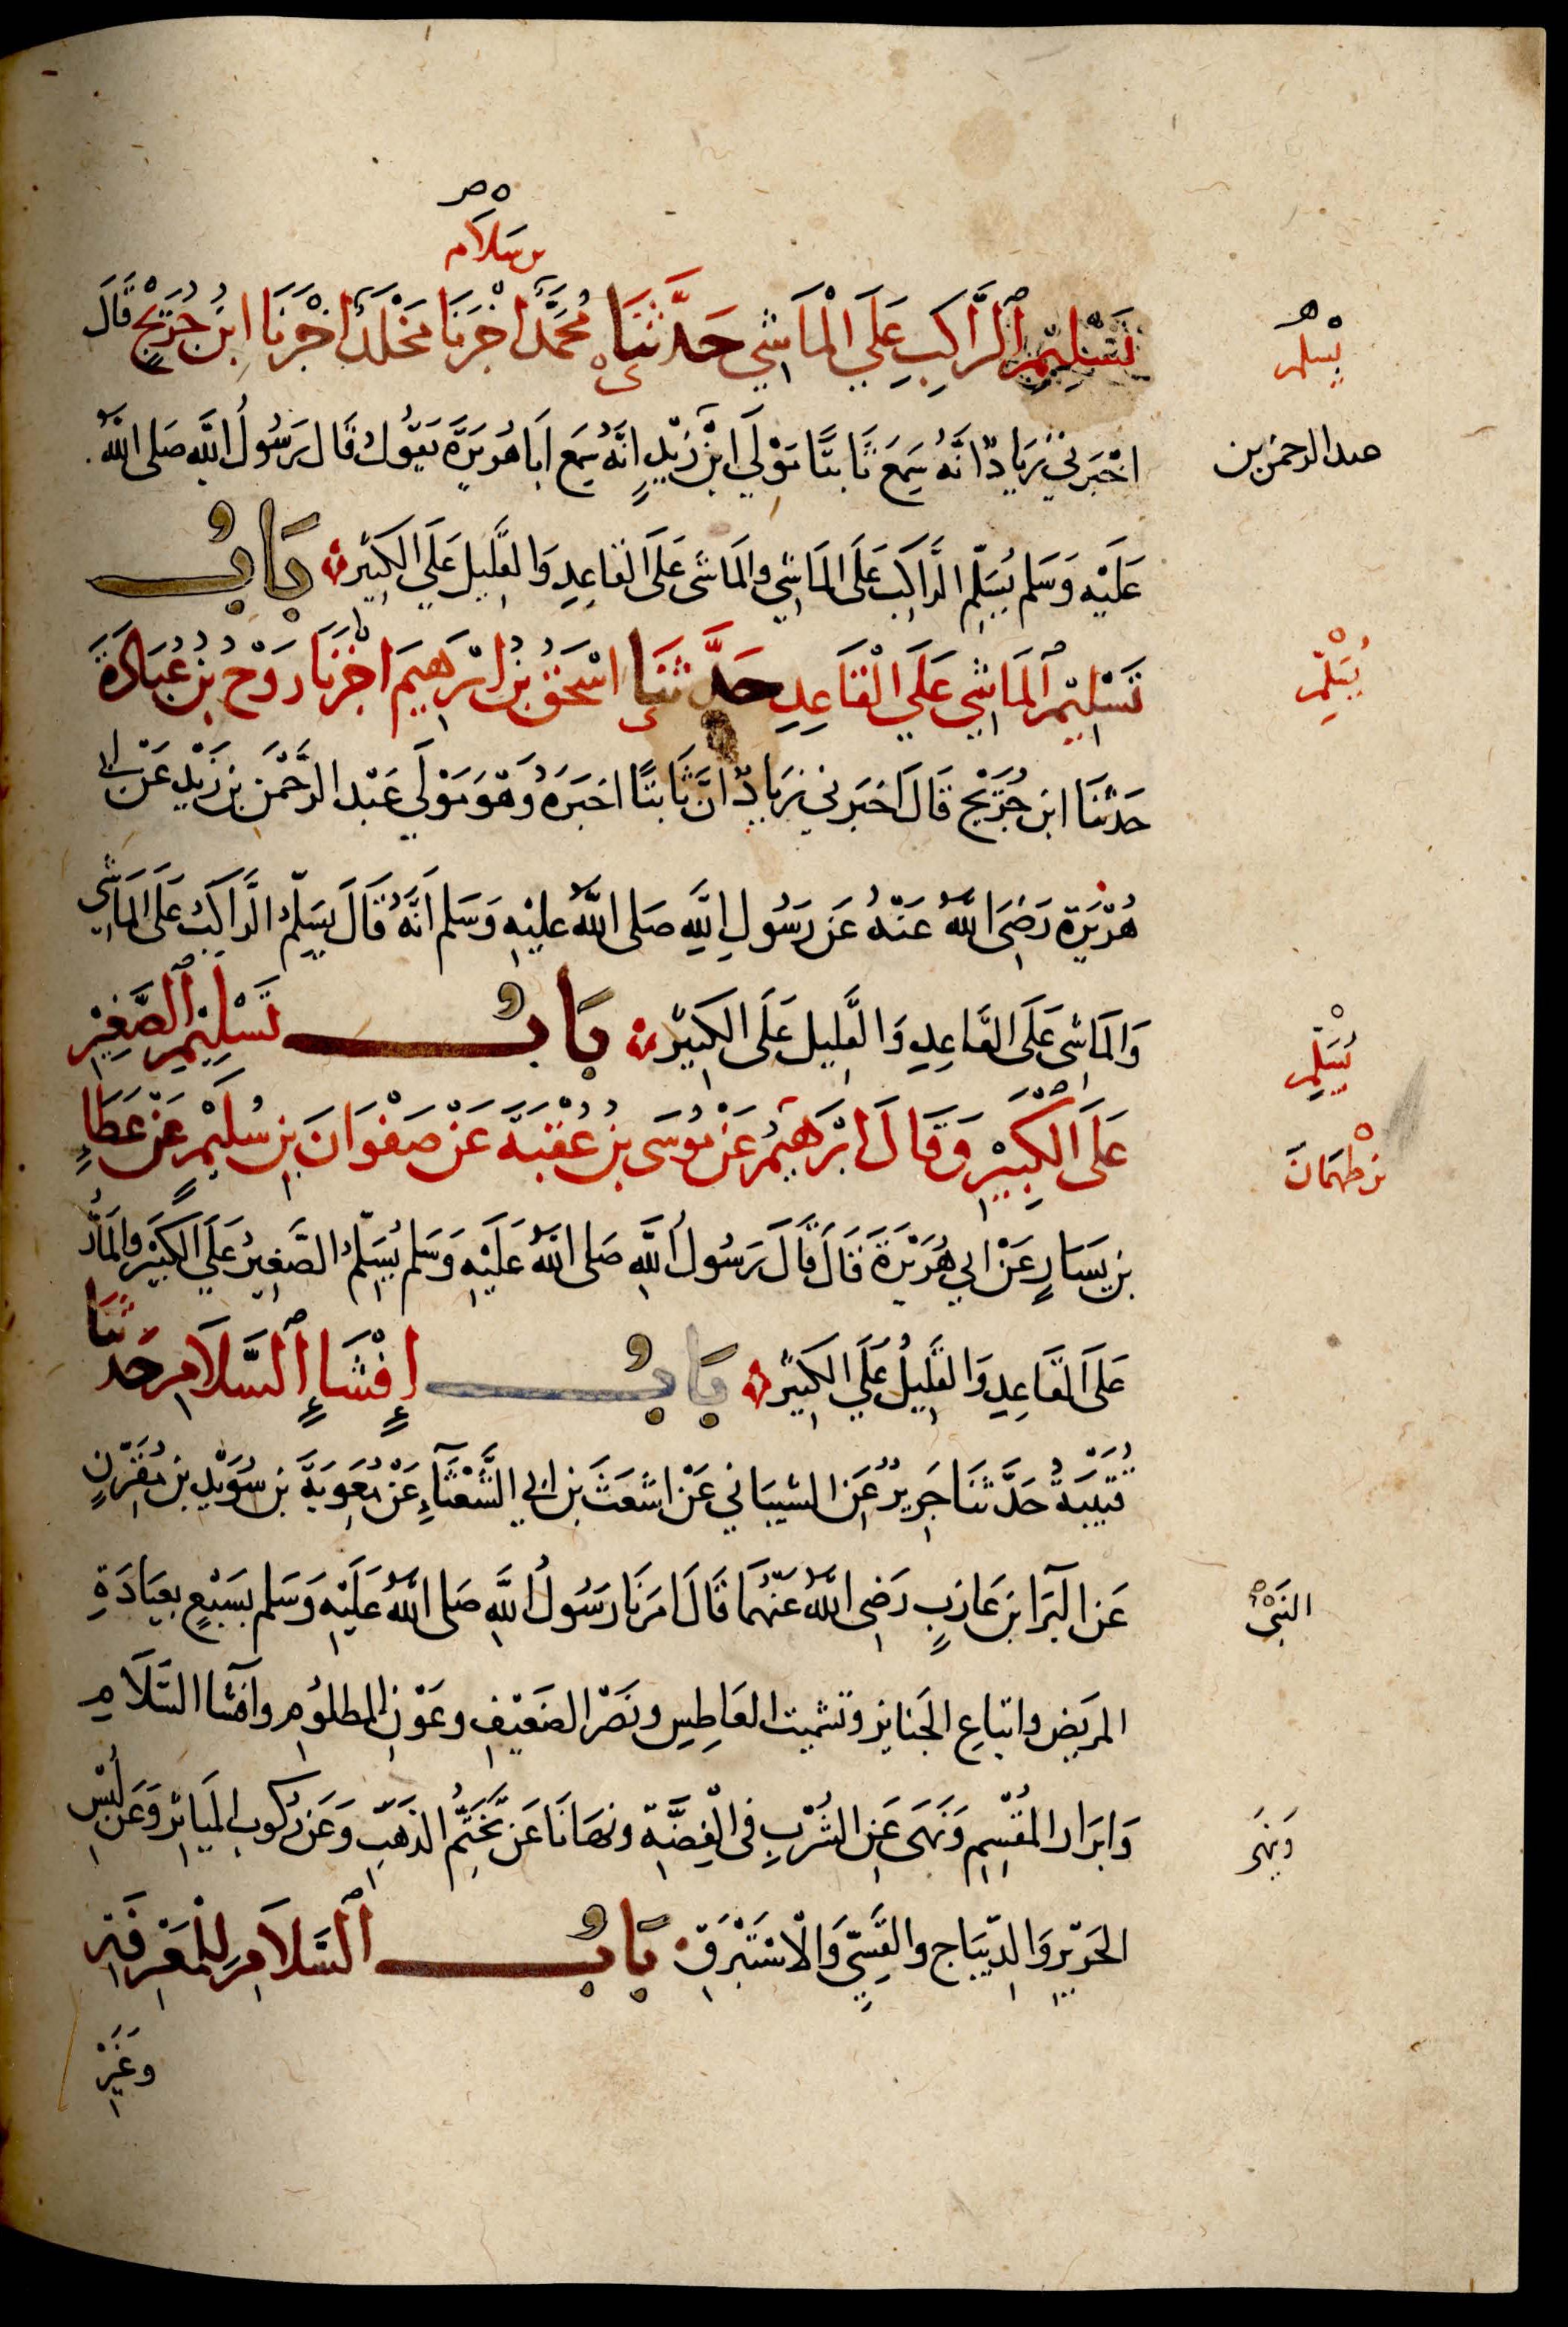 بن سلام
تَسْلِيمِ الرَّاكِبِ عَلَي الْمَاشِي حَدَّثَنَا مُحَمَّدٌ اخْبَرَنَا مَخْلَدٌ اخْبَرَنَا ابْنُ جُرَيْجٍ قَالَ
يسلم
اخْبَرَني زِيَادٌ انَّهُ سَمِعَ ثَابِتًا مَوْلَي ابْنِ زَيْدٍ انَّهُ سَمِعَ ابَا هُرَيْرَةَ يَقُولُ قَالَ رَسُولُ اللَّهِ صَلى اللَّهُ
عبد الرحمن بن
عَلَيْهِ وَسَلم يُسَلِّمُ الرَّاكِبُ عَلَى المَاشِي وَالمَاشِى عَلَى القَاعِدِ وَالقَلِيل عَلَي الكَبِيْرِ بَابُ
تَسْلِيْمِ المَاشِي عَلَي الْقَاعِدِ حَدَّثَنَا اسْحَقُ بْنُ ابْرَهِيمَ اخْبَرَنَا رَوْحُ بْنُ عُبَادَةَ
يُسَلِّمُ
حَدَثَنَا ابن جُرَيْج قَالَ اخبَرَني زِيَادٌ انَّ ثَابتًا اخبَرَهُ وَهُوَ مَوْلَي عَبْد الرَّحْمَن بن زَيْدٍ عَنْ ابي
هُرَيْرَة رَضِىَ اللَّهُ عَنْهُ عَن رَسُولِ اللَّهِ صَلى اللَّهُ عَليْهِ وَسَلم اَنَّهُ قَالَ يسَلِّمُ الرَّاكبُ عَلى المَاشِي
وَالمَاشِى عَلَى القَاعِدِ وَالقَلِيل عَلَى الكَبِيْرِ بَابُ تَسْلِيْمِ الصَّغِيْرِ
يُسَلِّمُ
عَلَى الْكَبِيْرِ وَقَالَ ابْرَهِيْمُ عَنْ مُوسَى بن عُقْبَةَ عَنْ صَفْوَانَ بْنِ سُلَيْمٍ عَنْ عَطَاءِ
بن طهمَانَ
بن يَسَارٍ عَنْ ابي هُرَيْرَةَ قَالَ قَالَ رَسُولُ اللَّهِ صَلى اللَّهُ عَلَيْهِ وَسَلم يُسَلِّمُ الصَّغِيرُ عَلَي الكَبِيْرِ وَالمَارُّ
عَلَى القَاعِدِ وَالقَلِيلُ عَلَي الكَبِيْرِ بَابُ إِفْشَاءِ السَّلَامِ حَدثَنَا
قُتَيْبَةُ حَدَّثَنَا جَرِيرٌ عَن الشيبَاني عَنْ اشعَثَ بن ابي الشَّعْثَاءِ عَنْ مُعَوِيَةَ بن سُوَيْدِ بن مُقَرِّنٍ
عَن البَرَا بن عَازِبٍ رَضِي اللَّهُ عَنْهُمَا قَالَ امَرَنَا رَسُولُ اللَّهِ صَلى اللَّهُ عَلَيْهِ وَسَلم بسَبْعٍ بعِيَادَةِ
النَبىُّ
المريض واتباعِ الجَنايز وتشميت العَاطِسِ ونَصْرِ الضَعِيْفِ وعَوْنِ المظلوُمِ وافشا السَّلَامِ
وَابرَار المُقْسِمِ وَنَهَى عَنِ الشُرْبِ فى الفِضَّةِ ونهَانَا عَن تَخَتُّمِ الذهَبِ وَعَن رُكوبِ المَيَاثِرِ وَعَن لُبْسِ
وَنهَى
الحَريْرِ وَالدِّيبَاج والقَسِيِّ وَالْاسْتَبْرَقِ بَابُ السَّلَامِ لِلْمَعْرِفَةِ
وغَيْرِ